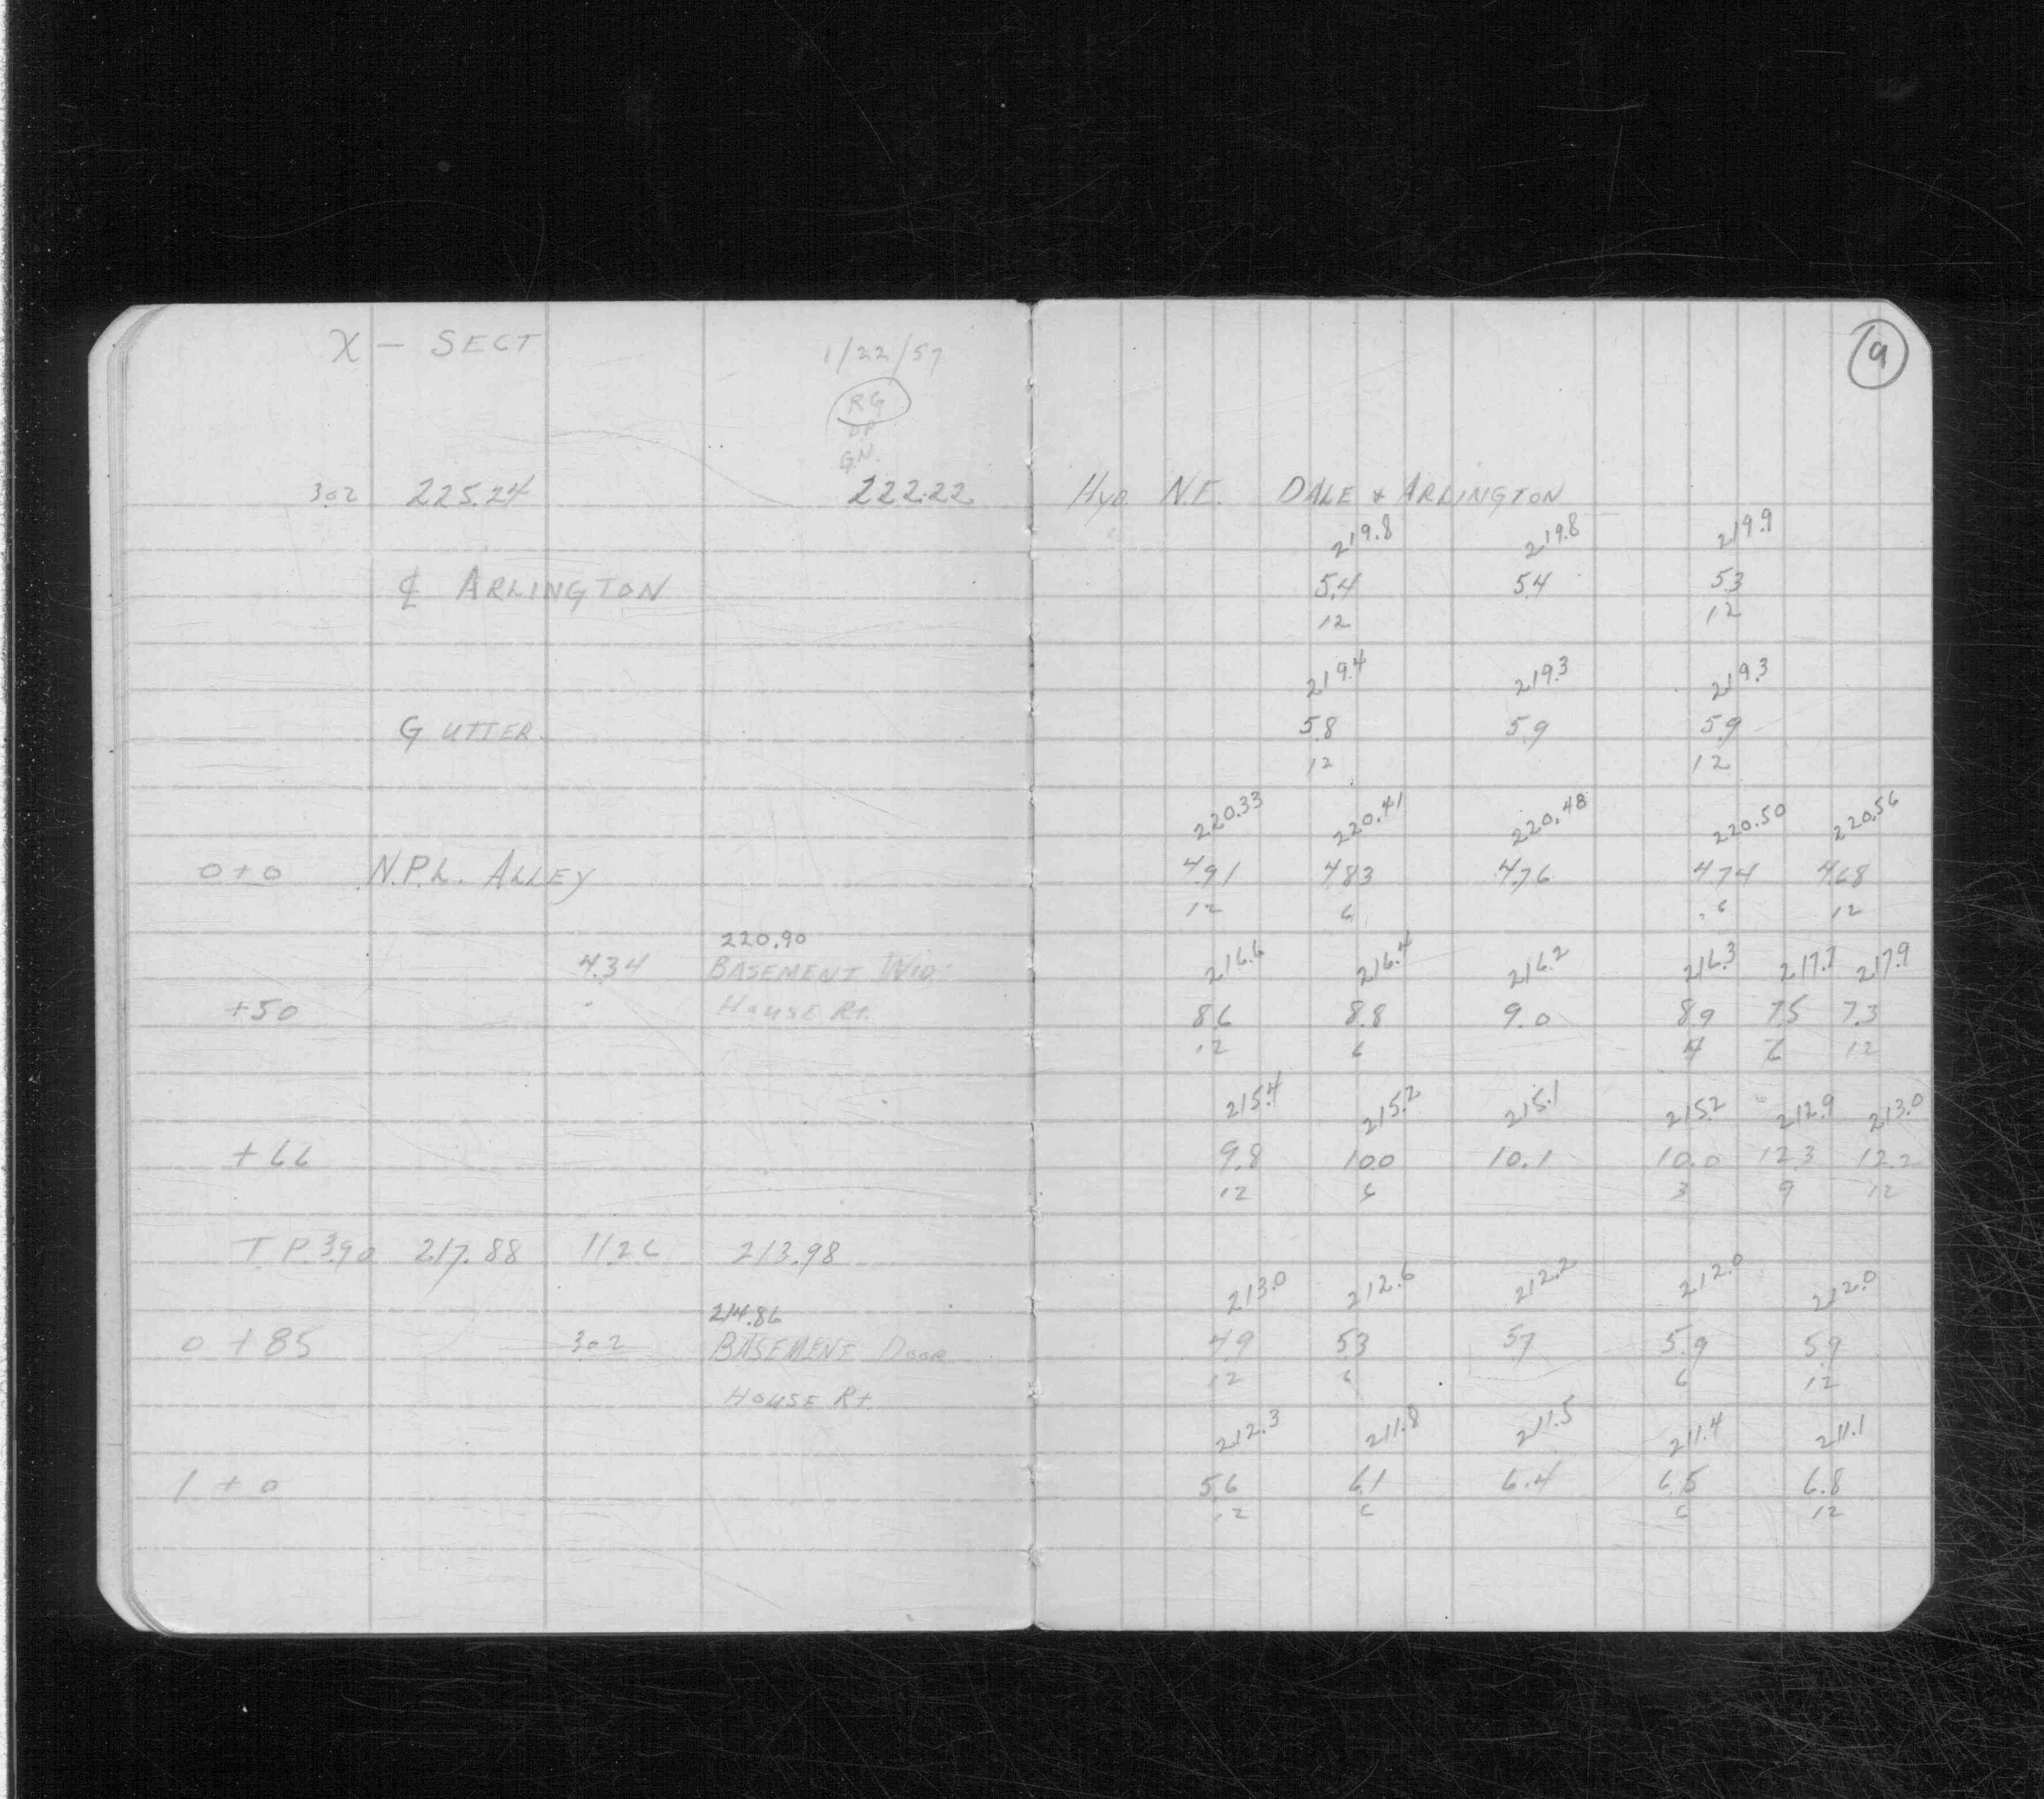 X - SECT 1/22/57
9
RG
GN.
3.02 225.24 222.22 Hyd. N.E. DALE & ARLINGTON
219.8 219.8 219.9
℄ ARLINGTON 5.4 5.4 5.3
12 12
219.4 219.3 219.3
GUTTER 5.8 5.9 5.9
12 12
220.33 220.41 220.48 220.50 220.56
0+0 N.P.L. ALLEY 4.91 4.83 4.76 4.74 4.68
12 6 6 12
220.90
4.34 BASEMENT 216.6 216.4 216.2 216.3 217.7 217.9
+50 HOUSE Rt. 8.6 8.8 9.0 8.9 7.5 7.3
12 6 4 6 12
215.4 215.2 215.1 215.2 212.9 213.0
+66 9.8 10.0 10.1 10.0 12.3 12.2
12 6 3 9 12
T.P. 3.90 217.88 11.26 213.98
213.0 212.6 212.2 212.0 212.0
214.86
0+85 3.02 BASEMENT DOOR 4.9 5.3 5.7 5.9 5.9
HOUSE Rt. 12 6 6 12
212.3 211.8 211.5 211.4 211.1
1+0 5.6 6.1 6.4 6.5 6.8
12 6 6 12